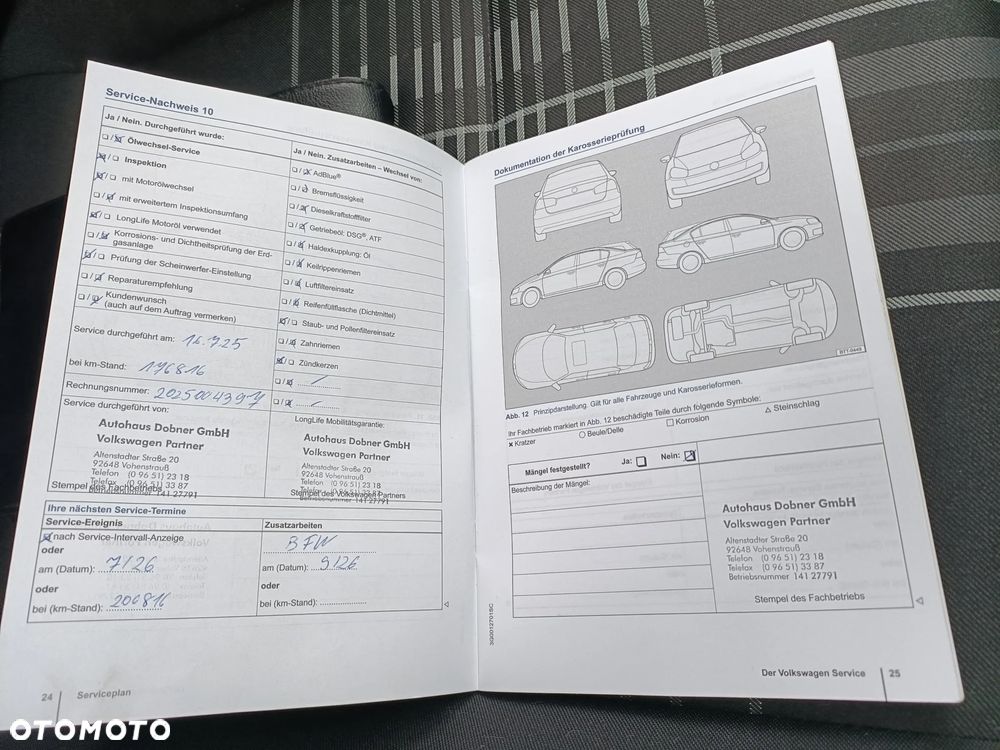 Service-Nachweis 10
Ja / Nein. Durchgeführt wurde:
Ölwechsel-Service
Inspektion
mit Motorölwechsel
mit erweitertem Inspektionsumfang
LongLife Motoröl verwendet
Korrosions- und Dichtheitsprüfung der Erd-
gasanlage
Prüfung der Scheinwerfer-Einstellung
Reparaturempfehlung
Kundenwunsch
(auch auf dem Auftrag vermerken)
Service durchgeführt am: 16.7.25
bei km-Stand: 176816
Rechnungsnummer:
Service durchgeführt von:
Autohaus Dobner GmbH
Volkswagen Partner
Altenstadter Straße 20
92648 Vohenstrauß
Telefon (0 96 51) 23 18
Telefax (0 96 51) 33 87
Betriebsnummer 141 27791
Stempel des Fachbetriebs
Ja / Nein. Zusatzarbeiten – Wechsel von:
AdBlue®
Bremsflüssigkeit
Dieselkraftstofffilter
Getriebeöl: DSG®, ATF
Haldexkupplung: Öl
Keilrippenriemen
Luftfiltereinsatz
Reifenfüllflasche (Dichtmittel)
Staub- und Pollenfiltereinsatz
Zahnriemen
Zündkerzen
LongLife Mobilitätsgarantie:
Autohaus Dobner GmbH
Volkswagen Partner
Altenstadter Straße 20
92648 Vohenstrauß
Telefon (0 96 51) 23 18
Telefax (0 96 51) 33 87
Stempel des Volkswagen Partners
Betriebsnummer 141 27791
Ihre nächsten Service-Termine
Service-Ereignis
nach Service-Intervall-Anzeige
oder
am (Datum): 7/26
oder
bei (km-Stand): 200816
Zusatzarbeiten
BFW
am (Datum): 9/26
oder
bei (km-Stand):
24
Serviceplan
Dokumentation der Karosserieprüfung
B1T-0449
Abb. 12 Prinzipdarstellung. Gilt für alle Fahrzeuge und Karosserieformen.
Ihr Fachbetrieb markiert in Abb. 12 beschädigte Teile durch folgende Symbole:
× Kratzer ○ Beule/Delle □ Korrosion △ Steinschlag
Mängel festgestellt? Ja: Nein:
Beschreibung der Mängel:
Autohaus Dobner GmbH
Volkswagen Partner
Altenstadter Straße 20
92648 Vohenstrauß
Telefon (0 96 51) 23 18
Telefax (0 96 51) 33 87
Betriebsnummer 141 27791
Stempel des Fachbetriebs
3Q0012701BC
Der Volkswagen Service
25
OTOMOTO